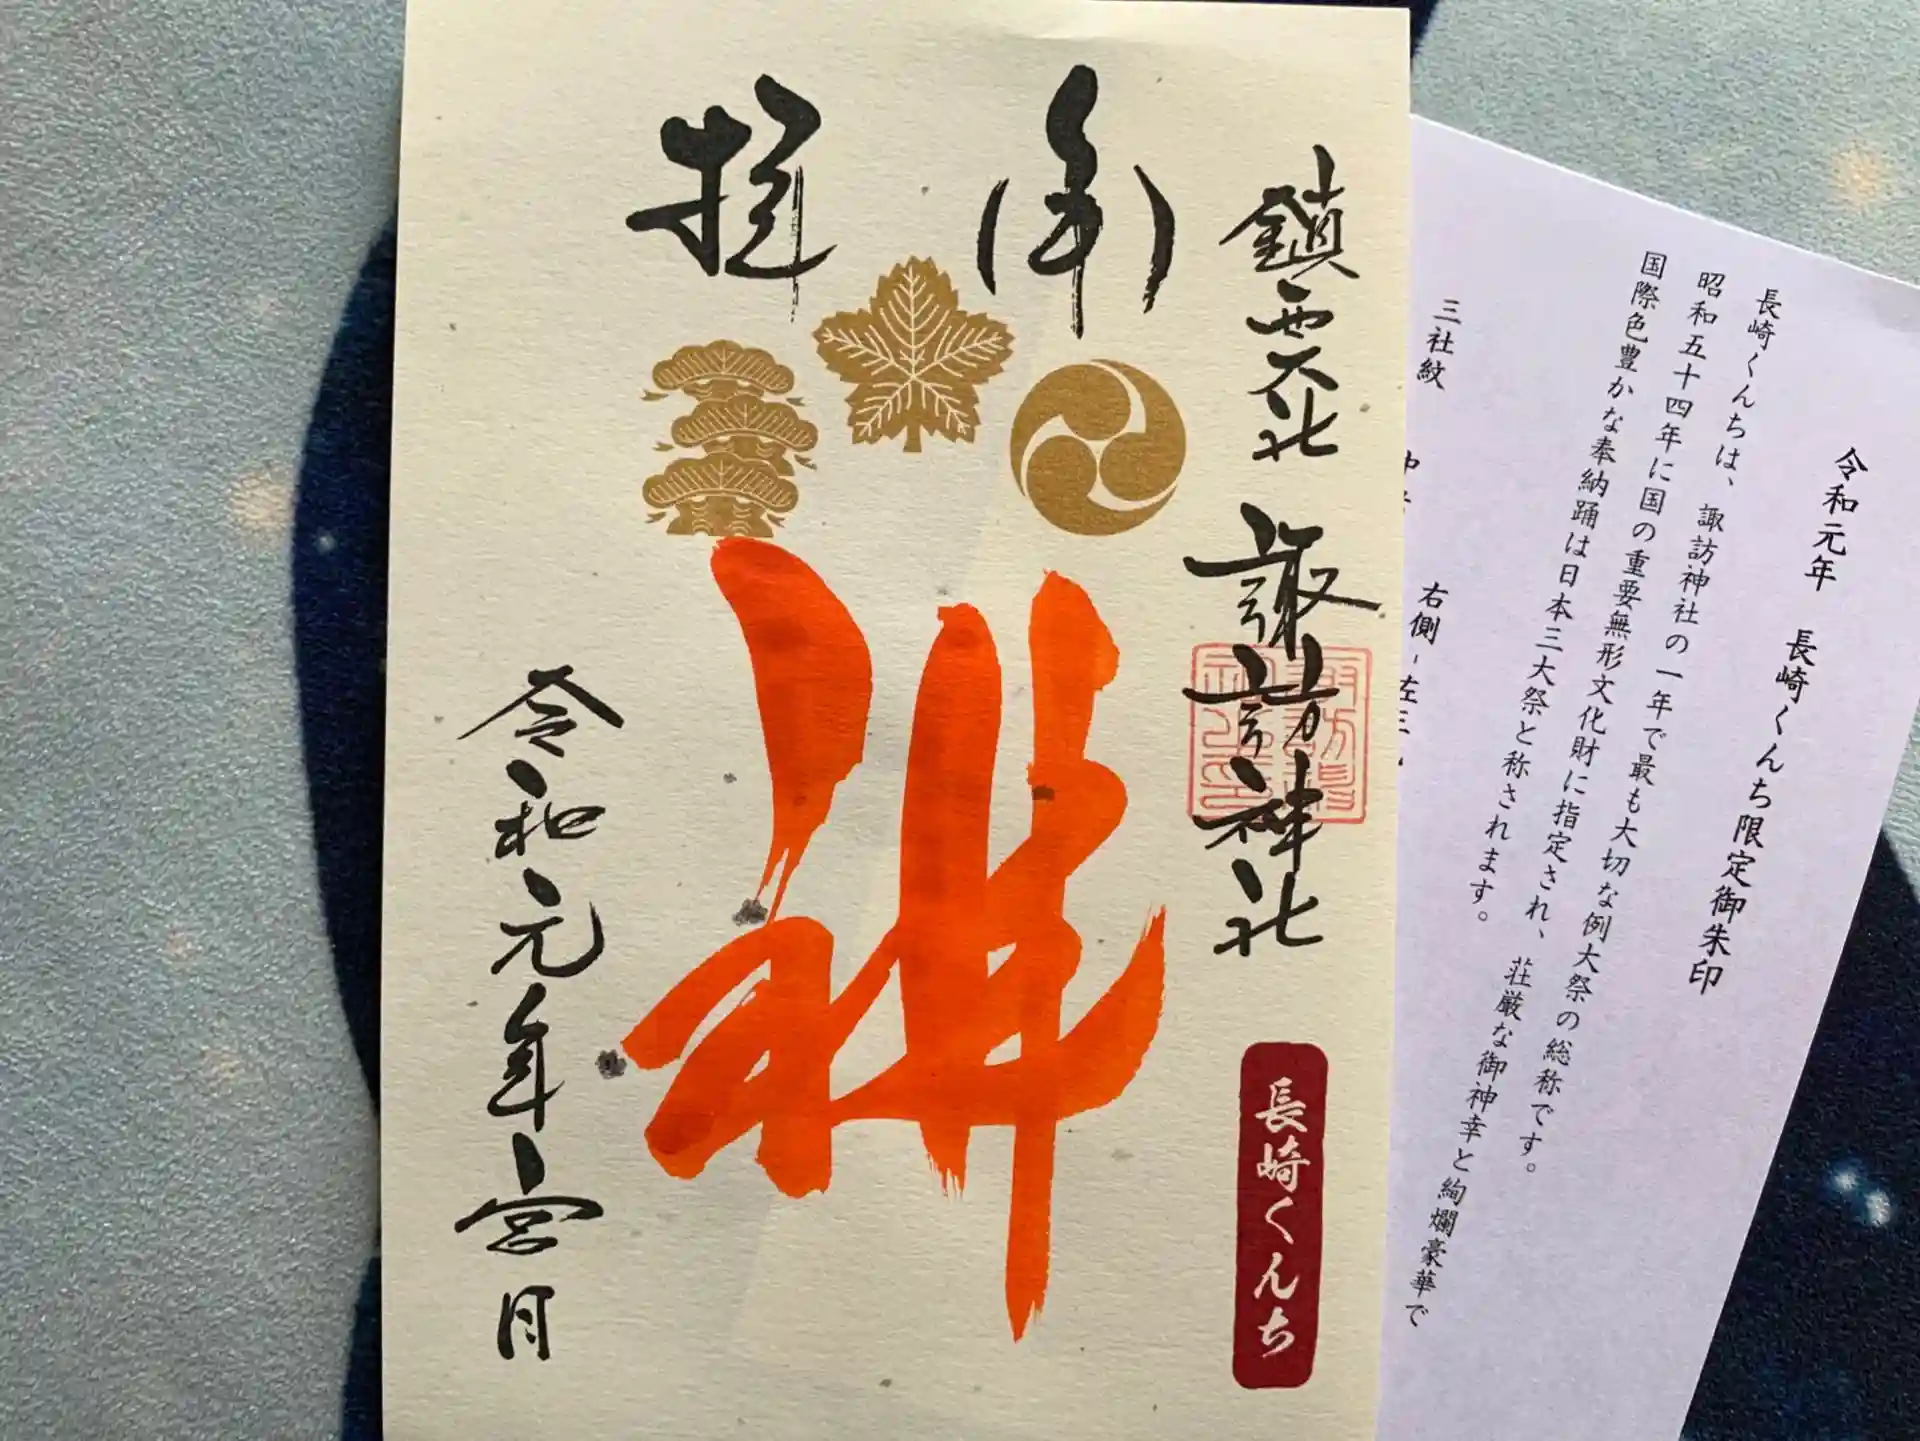 奉拝
鎮西大社 諏訪神社
長崎くんち
令和元年 月
令和元年 長崎くんち限定御朱印
長崎くんちは、諏訪神社の一年で最も大切な例大祭の総称です。
昭和五十四年に国の重要無形文化財に指定され、荘厳な御神幸と絢爛豪華で
国際色豊かな奉納踊は日本三大祭と称されます。
三社紋 右側-左三